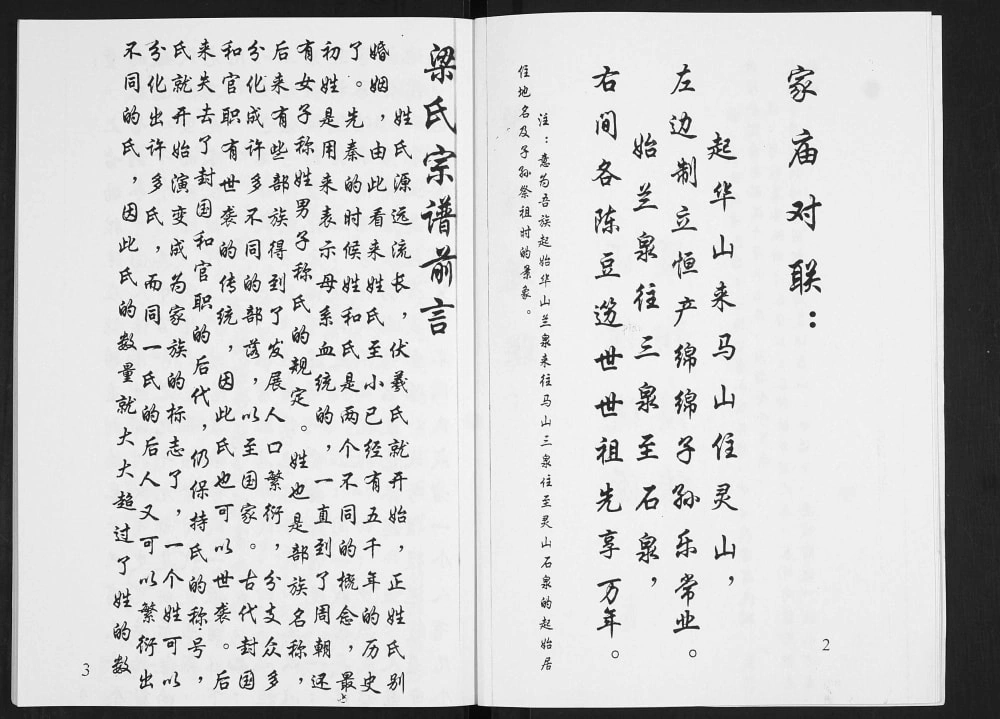 家庙对联：
起华山来马山住灵山，
左边制立恒产绵绵子孙乐常业。
始兰泉往三泉至石泉，
右间各陈豆笾世世祖先享万年。
注：意为吾族起始华山兰泉来往马山三泉住至灵山石泉的起始居
住地名及子孙祭祖时的景象。
2
梁氏宗谱前言
姓氏源远流长，伏羲氏就开始，正姓氏别
婚姻，由此看来姓氏至小已经有五千年的历史
了。先秦的时候姓和氏是两个不同的概念，最
初姓是用来表示母系血统的，一直到了周朝还
有女子称姓男子称氏的规定。姓也是部族名称，
后来有些部族得到了发展人口繁衍，分支众多
分化成许多不同的部落，以至国家。古代封国
和官职有世袭的传统，因此氏也可以世袭。后
来失去了封国和官职的后代，仍保持氏的称号，
氏就开始演变成为家族的标志了，一个姓可以
分化出许多氏，而同一氏的后人又可以繁衍出
不同的氏，因此氏的数量就大大超过了姓的数
3